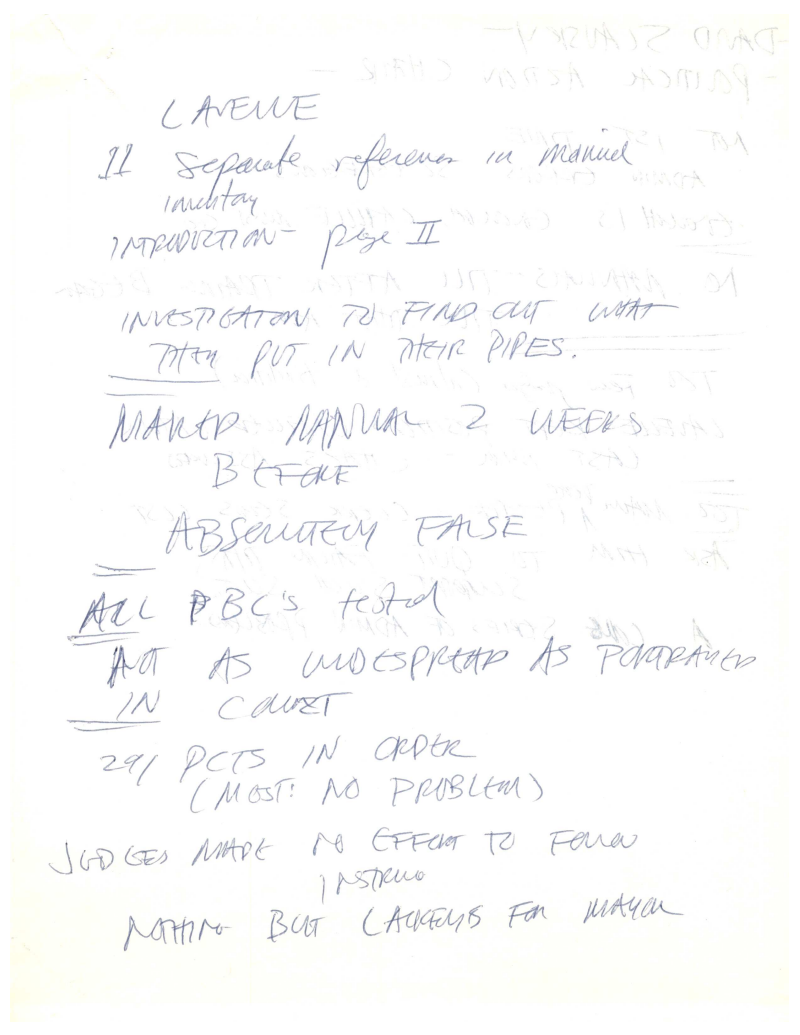 LAVELLE
11 Separate references in manual
inventory
INTRODUCTION - page II
INVESTIGATION TO FIND OUT WHAT
THEY PUT IN THEIR PIPES.
MAILED MANUAL 2 WEEKS
BEFORE
ABSOLUTELY FALSE
ALL PBC's tested
NOT AS WIDESPREAD AS PORTRAYED
IN COURT
291 PCTS IN ORDER
(MOST: NO PROBLEM)
JUDGES MADE NO EFFORT TO FOLLOW
INSTRUC
NOTHING BUT LACKEYS FOR MAYOR